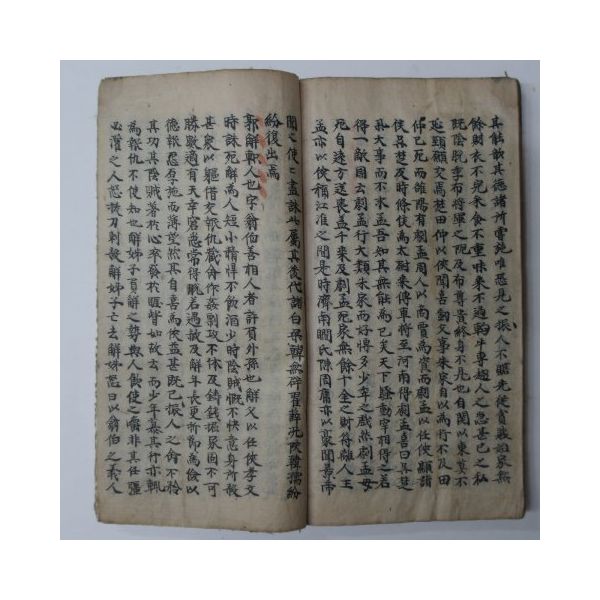 其能歆其德諸所嘗施唯恐見之振人不贍先從貧賤始家無
餘財衣不完采食不重味乘不過軥牛專趨人之急甚己之私
既陰脫季布將軍之阨及布尊貴終身不見也自関以東莫不
延頸願交焉楚田仲以俠聞喜劍父事朱家自以為行不及田
仲已死而雒陽有劇孟周人以商賈為資而劇孟以任俠顯諸
侯吳楚反時條侯為太尉乘傳車將至河南得劇孟喜曰吳楚
舉大事而不求孟吾知其無能為已矣天下騷動宰相得之若
得一敵國云劇孟行大類朱家而好博多少年之戲然劇孟母
死自遠方送喪蓋千乘及劇孟死家無餘十金之財符離人王
孟亦以俠稱江淮之間是時濟南瞷氏陳周庸亦以豪聞景帝
聞之使使盡誅此屬其後代諸白梁韓無辟翟薛兄陝韓孺紛
紛復出焉
郭解軹人也字翁伯善相人者許負外孫也解父以任俠孝文
時誅死解為人短小精悍不飲酒少時陰賊慨不快意身所殺
甚衆以軀借交報仇藏命作姦剽攻不休及鑄錢掘冢固不可
勝數適有天幸窘急常得脫若遇赦及解年長更折節為儉以
德報怨厚施而薄望然其自喜為俠益甚既已振人之命不矜
其功其陰賊著於心卒發於睚眥如故云而少年慕其行亦輒
為報仇不使知也解姊子負解之勢與人飲使之嚼非其任彊
必灌之人怒拔刀刺殺解姊子亡去解姊怒曰以翁伯之義人